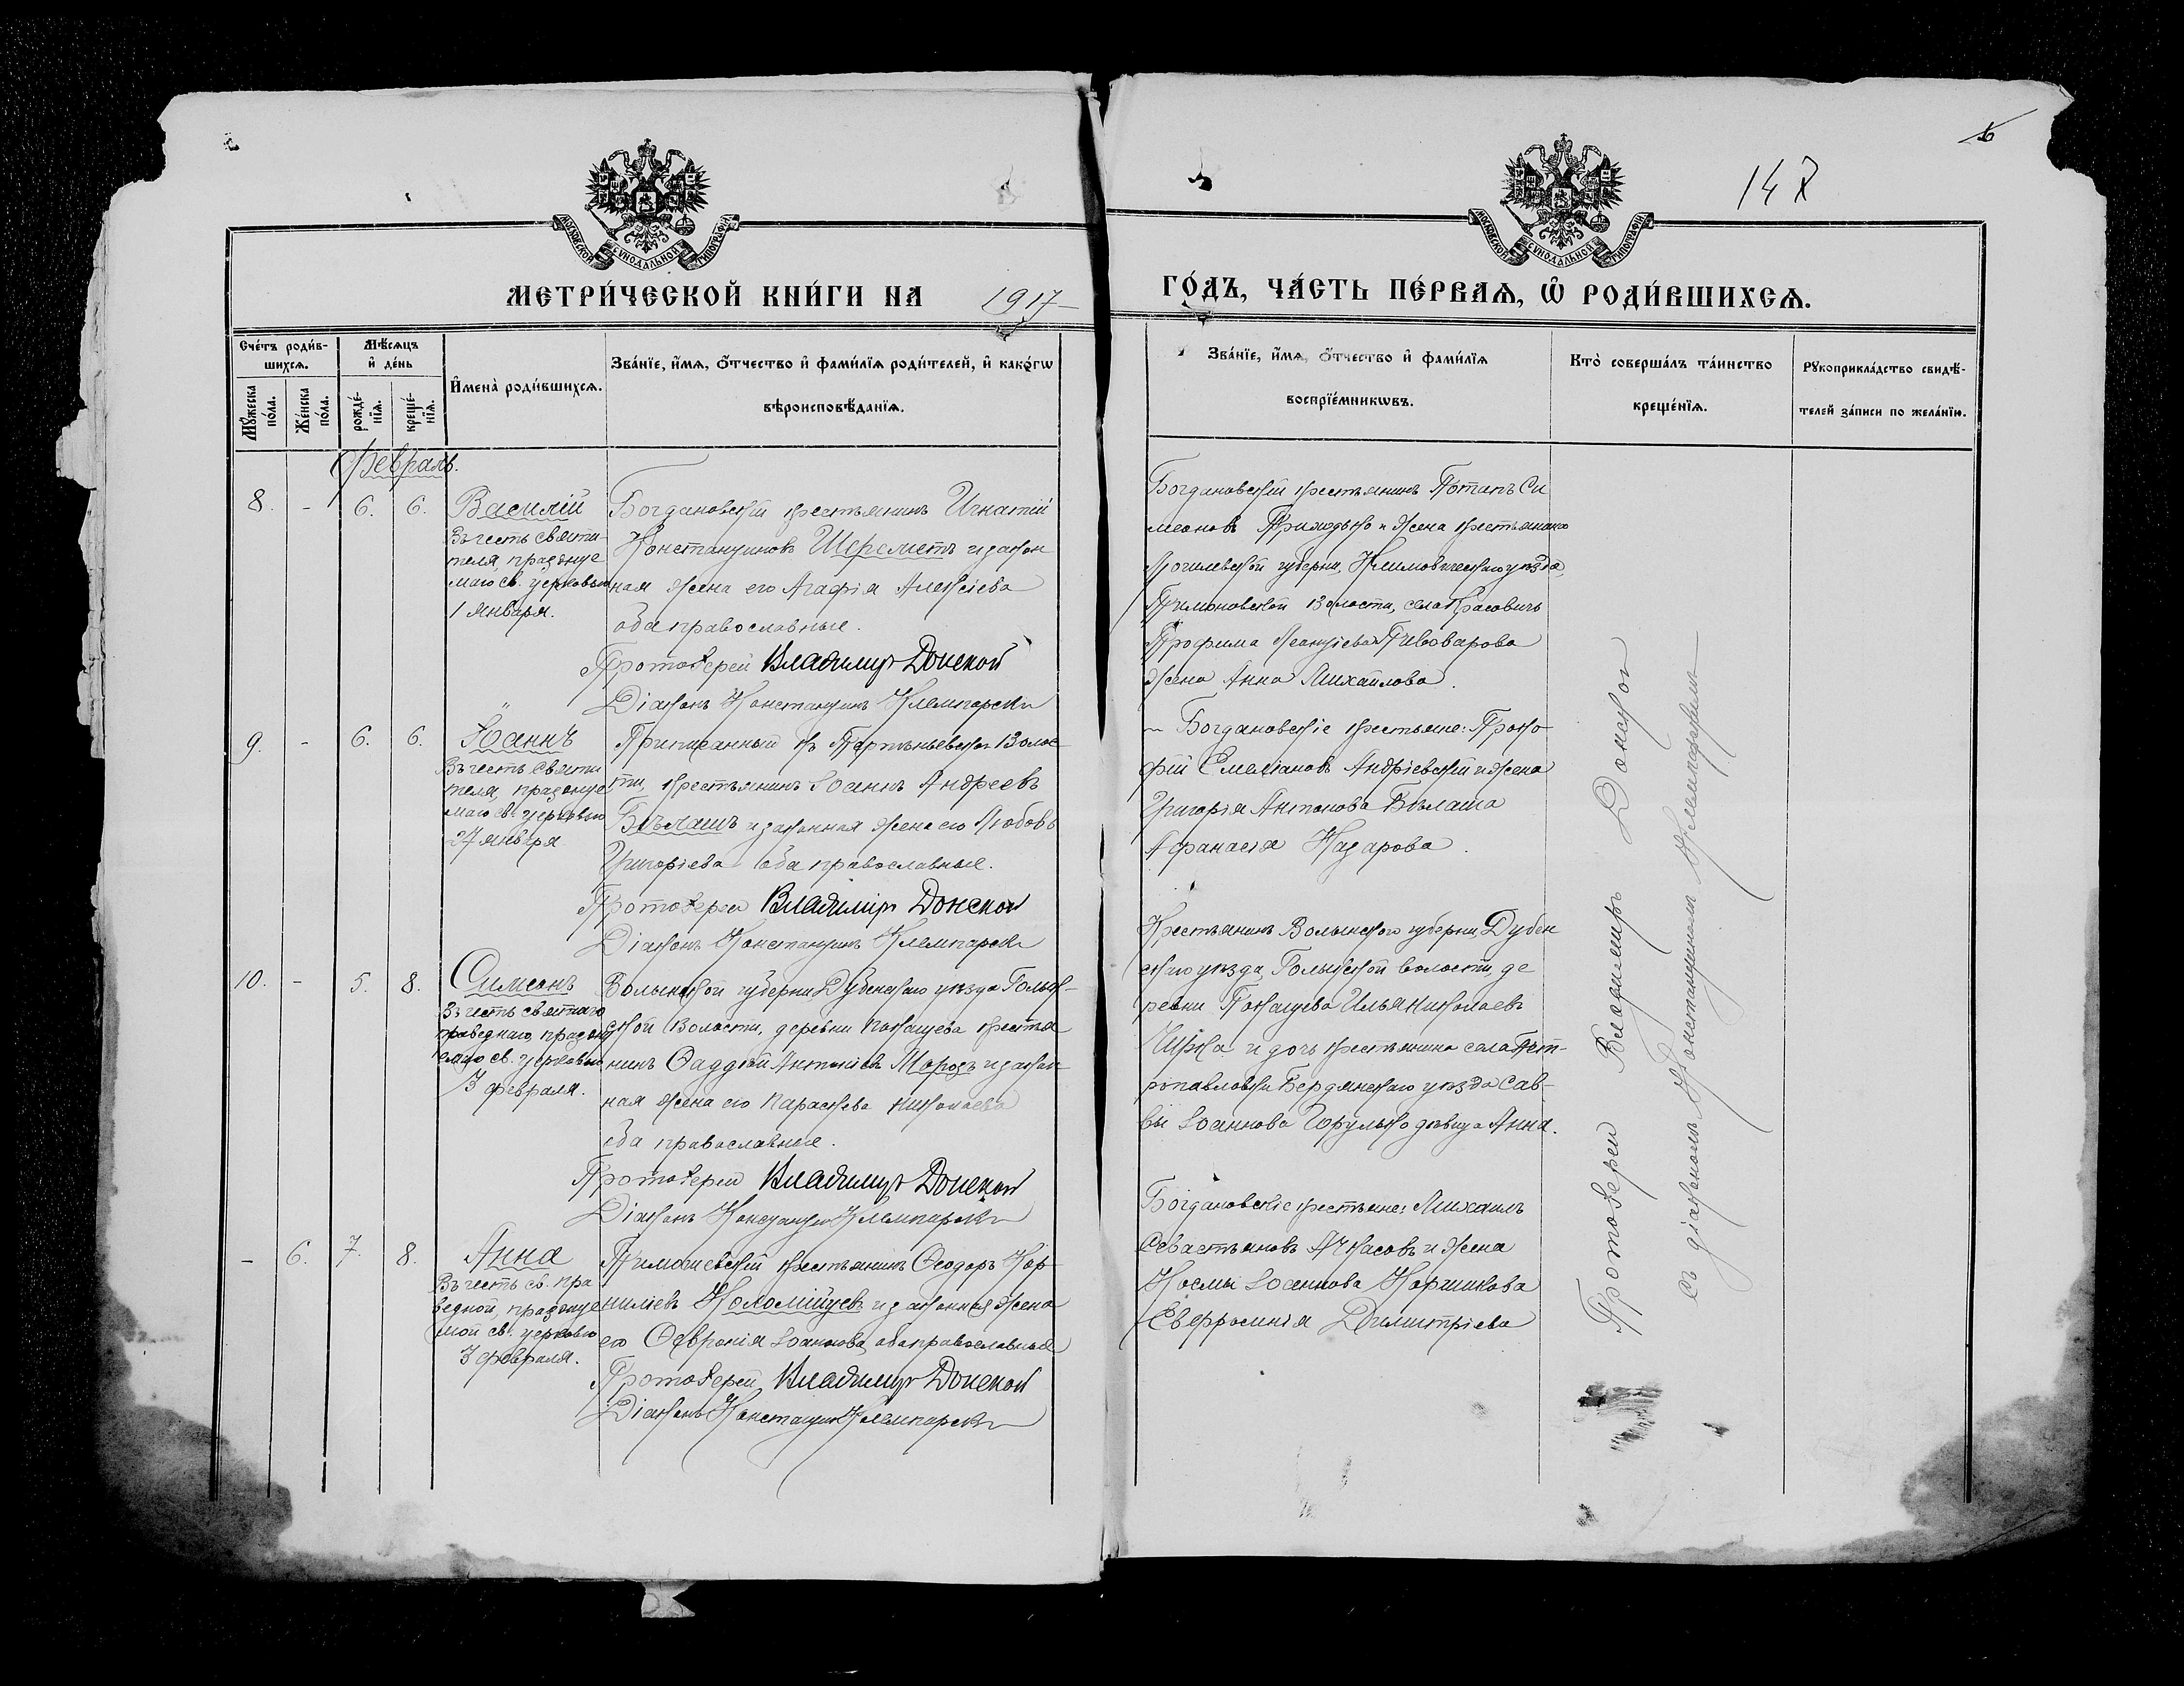 6
147
МОСКОВСКОЙ СУНОДАЛЬНОЙ ТИПОГРАФІИ
МОСКОВСКОЙ СУНОДАЛЬНОЙ ТИПОГРАФІИ
МЕТРИ́ЧЕСКОЙ КНИ́ГИ НА 1917
ГО́ДЪ, ЧА́СТЬ ПЕ́РВАѦ, Ѡ҆ РОДИ́ВШИХСѦ.
Сче́тъ роди́в-
шихсѧ.
Мꙋ́жеска
по́ла.
Же́нска
по́ла.
Мѣ́сѧцъ
и҆ де́нь
рожде́-
нїѧ.
креще́-
нїѧ.
И҆мена̀ роди́вшихсѧ.
Зва́нїе, и҆́мѧ, ѻ҆́тчество и҆ фами́лїѧ роди́телей, и҆ како́гѡ
вѣроисповѣ́данїѧ.
Зва́нїе, и҆́мѧ, ѻ҆́тчество и҆ фами́лїѧ
воспрїе́мникѡвъ.
Кто̀ соверша́лъ та́инство
креще́нїѧ.
Рꙋкоприкла́дство свидѣ́-
телей за́писи по жела́нїю.
Февраль.
8. - 6. 6.
Василій
Въ честь святи-
теля, праздпуе
маго св. церковью
1 января.
Богдановскій крестьянинъ Игнатій
Константиновъ Шереметъ и закон
ная жена его Агафія Алексіева
оба православные.
Протоіерей Владимиръ Донской
Діаконъ Константинъ Клемпарскій
Богдановскій крестьянинъ Потапъ Си
меоновъ Приходько и жена крестьянина
Могилевской губерніи, Климовическаго уѣзда,
Тимоновской волости, села Красовичъ
Трофима Леонтіева Пивоварова
жена Анна Михайлова.
9. - 6. 6.
Іоаннъ
Въ честь святи
теля, празднуе
маго св. церковью
27 января
Приписанный къ волос
ти, крестьянинъ Іоаннъ Андреевъ
Бѣлашъ и законная жена его Любовь
Григоріева оба православные.
Протоіерей Владиміръ Донской
Діаконъ Константинъ Клемпарскій
Богдановскіе крестьяне: Проко
фій Емеліановъ Андріевскій и жена
Григорія Антонова Бѣлаша
Афанасія Назарова.
10. - 5. 8.
Симеонъ
Въ честь святаго
праведнаго, праздну
емаго св. церковью
3 февраля.
Волынской губерніи Дубенскаго уѣзда
ской волости, деревни Покащева крестья
нинъ Фаддей Антоніевъ Морозъ и закон
ная жена его Параскева Николаева
оба православные.
Протоіерей Владимиръ Донской
Діаконъ Константинъ Клемпарскій
Крестьянинъ Волынской губерніи, Дубен
скаго уѣзда, волости, де
ревни Покащева Илья Николаевъ
и дочь крестьянина села Пет-
ропавловки Бердянскаго уѣзда Сав-
вы Іоаннова девица Анна.
- 6. 7. 8.
Анна
Въ честь св. пра
ведной, празднуе
мой св. церковью
3 февраля.
крестьянинъ Феодоръ Кор
ниліевъ Коломійцевъ и законная жена
его Февронія Іоаннова, оба православные
Протоіерей Владимиръ Донской
Діаконъ Константинъ Клемпарскій
Богдановскіе крестьяне: Михаилъ
Севастьяновъ Ачкасовъ и жена
Космы Іоаннова Коршикова
Евфросинія Димитріева
Протоіерей Владимиръ Донской
съ діакономъ Константиномъ Клемпарскимъ